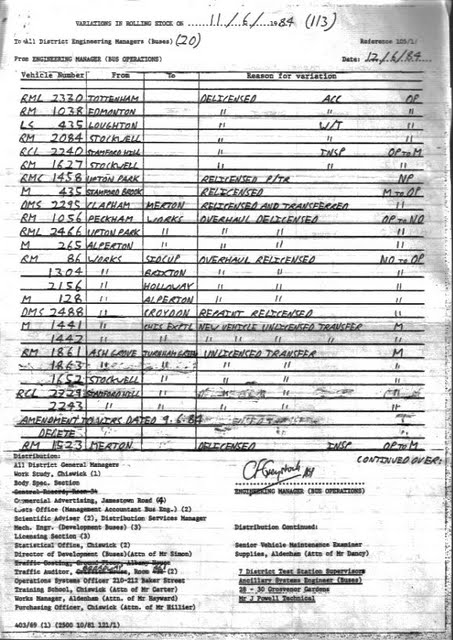 VARIATIONS IN ROLLING STOCK ON 11/6/1984 (113)
To: All District Engineering Managers (Buses) (20) Reference 105/1/
From ENGINEERING MANAGER (BUS OPERATIONS) Date: 12/6/84
Vehicle Number From To Reason for variation
RML 2330 TOTTENHAM DELICENSED ACC OP
RM 1038 EDMONTON " " "
LS 435 LOUGHTON " W/T "
RM 2084 STOCKWELL " " "
RCL 2240 STAMFORD HILL " INSP OP TO M
RM 1627 STOCKWELL " " "
RMC 1458 UPTON PARK RELICENSED P/TR NP
M 435 STAMFORD BROOK RELICENSED M TO OP
DMS 2295 CLAPHAM MERTON RELICENSED AND TRANSFERRED "
RM 1056 PECKHAM WORKS OVERHAUL DELICENSED OP TO NO
RML 2466 UPTON PARK " " " "
M 265 ALPERTON " " " "
RM 86 WORKS SIDCUP OVERHAUL RELICENSED NO TO OP
1304 " BRIXTON " " "
2156 " HOLLOWAY " " "
M 128 " ALPERTON " " "
DMS 2488 " CROYDON REPAINT RELICENSED "
M 1441 CHIS EXPTL NEW VEHICLE UNLICENSED TRANSFER M
1442 " " " " "
RM 1861 ASH GROVE TURNHAM GREEN UNLICENSED TRANSFER M
1863 " " " " "
1652 STOCKWELL " " " "
RCL 2229 STAMFORD HILL " " " "
2243 " " " " "
AMENDMENT TO VIRS DATED 9.6.84
DELETE
RM 1523 MERTON DELICENSED INSP OP TO M
CONTINUED OVER:
Distribution:
All District General Managers
Work Study, Chiswick (1)
Body Spec. Section
ENGINEERING MANAGER (BUS OPERATIONS)
Commercial Advertising, Jamestown Road (4)
Costs Office (Management Accountant Bus Eng.) (2)
Scientific Adviser (2), Distribution Services Manager
Mech. Engr. (Development Buses) (3) Distribution Continued:
Licensing Section (3)
Statistical Office, Chiswick (2) Senior Vehicle Maintenance Examiner
Director of Development (Buses)(Attn of Mr Simon) Supplies, Aldenham (Attn of Mr Dancy)
Traffic Auditor, Room (2) 7 District Test Station Supervisors
Operations Systems Officer 210-212 Baker Street Ancillary Systems Engineer (Buses)
Training School, Chiswick (Attn of Mr Carter) 28 - 30 Grosvenor Gardens
Works Manager, Aldenham (Attn of Mr Hayward) Mr J Powell Technical
Purchasing Officer, Chiswick (Attn of Mr Hillier)
403/69 (1) (2500 10/81 121/1)